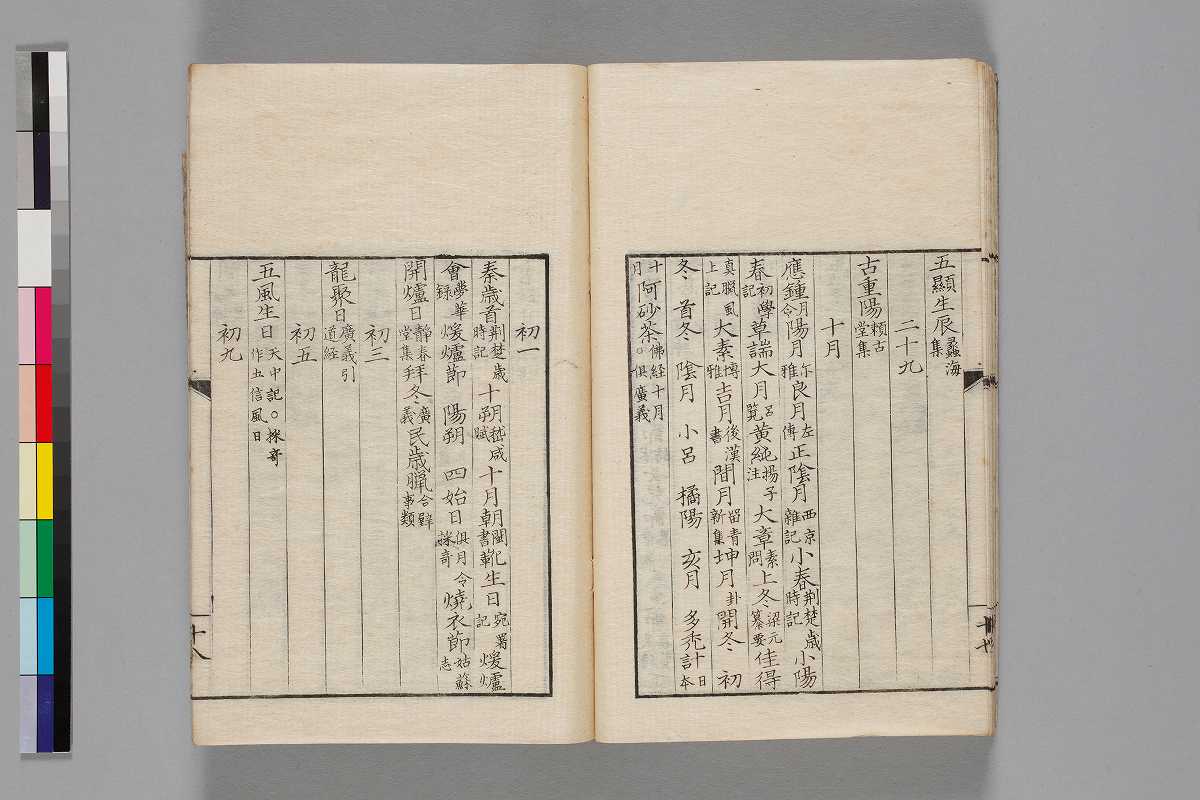 五顯生辰蠡海集
二十九
古重陽頼古堂集
十月
應鍾月令陽月尓雅良月左傳正陰月西京雜記小春荆楚歳時記小陽
春初學記草端大月呂覧黄純揚子注大章素問上冬梁元纂要佳得
真臘風上記大素博雅吉月後漢書間月留青新集坤月卦開冬 初
冬 首冬 陰月 小呂 橘陽 亥月 多禿訃十日本
十月阿砂荼佛経十月○俱廣義
初一
秦歳首荆楚歳時記十朔嵇咸賦十月朝閩書靴生日宛署記煖爐
會夢華録煖爐節 陽朔 四始日俱月令採奇燒衣節姑蘇志
開爐日靜春堂集拜冬廣義民歳臘合璧事類
初三
龍聚日廣義引道経
初五
五風生日天中記○採奇作五信風日
初九
十七
十八